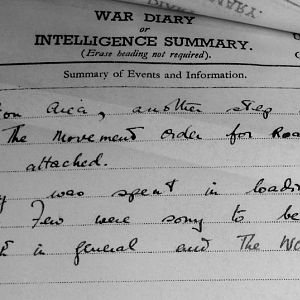 WAR DIARY
OR
INTELLIGENCE SUMMARY.
(Erase heading not required).
Summary of Events and Information.
Area, another step
The Movement Order for Roa
attached.
was spent in loadin
Few were sorry to be
in general and The